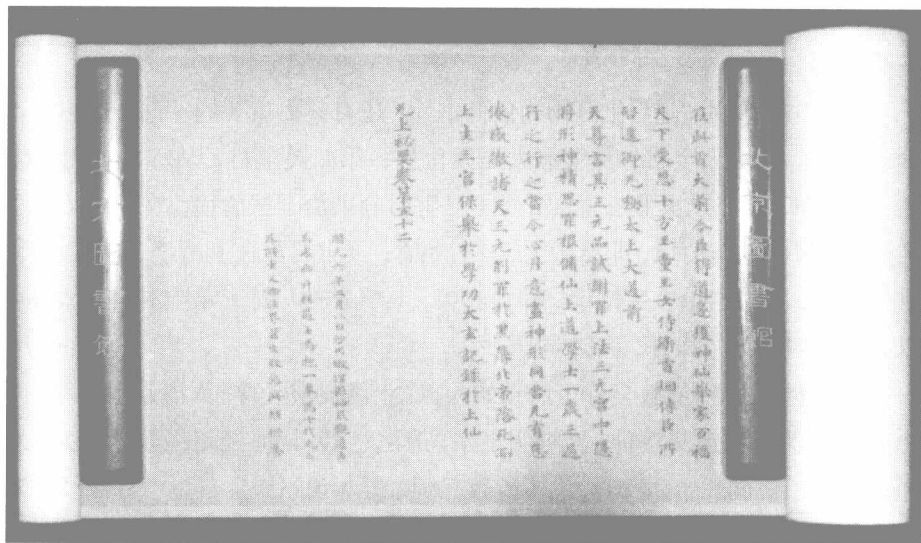 北京圖書館
此堂大前令臣行道受護神仙舉家百福
天下受恩十方玉童玉女侍衛香煙傳臣所
啓逕御无極太上大道前
天尊言其三元品誡謝罪上法三元宮中隱
形神精思罪根備仙上道學士一歲三過
行之行之當令心丹意盡神形同苦克有感
感徹諸天三元削罪於黑簿北帝落死名
上生三官保舉於學功太玄記錄於上仙
无上祕要卷第五十二
開元六年二月八日沙州燉煌縣神泉觀道士
馬處幽并姪道士馬抱一奉為七代先亡
所生父母及法界蒼生敬寫此經供養
北京圖書館